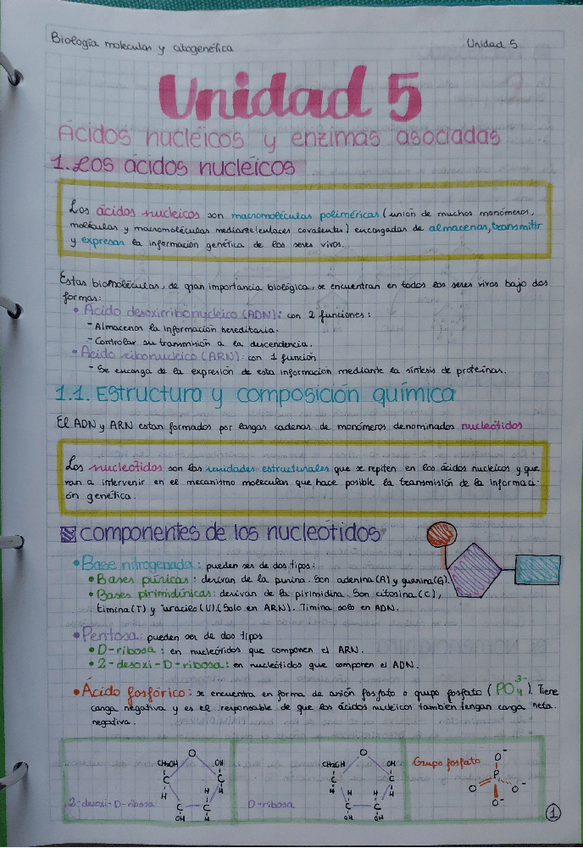 Biología molecular y citogenética Unidad 5
Unidad 5
Ácidos nucléicos y enzimas asociadas
1. Los ácidos nucléicos
Los ácidos nucleicos son macromoléculas poliméricas (unión de muchos monómeros,
moléculas y macromoléculas mediante enlaces covalentes) encargadas de almacenar, transmitir
y expresar la información genética de los seres vivos.
Estas biomoléculas, de gran importancia biológica, se encuentran en todos los seres vivos bajo dos
formas:
• Ácido desoxirribonucleico (ADN): con 2 funciones:
- Almacenar la información hereditaria.
- Controlar su transmisión a la descendencia.
• Ácido ribonucleico (ARN): con 1 función
- Se encarga de la expresión de esta información mediante la síntesis de proteínas.
1.1. Estructura y composición química
El ADN y ARN estan formados por largas cadenas de monómeros denominados nucleótidos
Los nucleótidos son las unidades estructurales que se repiten en los ácidos nucleicos y que
van a intervenir en el mecanismo molecular que hace posible la transmisión de la informaci-
ón genética.
componentes de los nucleótidos
• Base nitrogenada: pueden ser de dos tipos:
• Bases púricas: derivan de la purina. Son adenina (A) y guanina (G).
• Bases pirimidínicas: derivan de la pirimidina. Son citosina (C),
timina (T) y uracilo (U) (Solo en ARN). Timina solo en ADN.
• Pentosa: pueden ser de dos tipos
• D-ribosa: en nucleótidos que componen el ARN.
• 2-desoxi-D-ribosa: en nucleótidos que componen el ADN.
• Ácido fosfórico: se encuentra en forma de anión fosfato o grupo fosfato (PO4 3-). Tiene
carga negativa y es el responsable de que los ácidos nucleicos también tengan carga neta
negativa.
2-desoxi-D-ribosa
CH2OH O OH
C C
H H
C C
OH H
D-ribosa
CH2OH O OH
C C
H H
C C
OH OH
Grupo fosfato
O-
P
O O-
O-
1